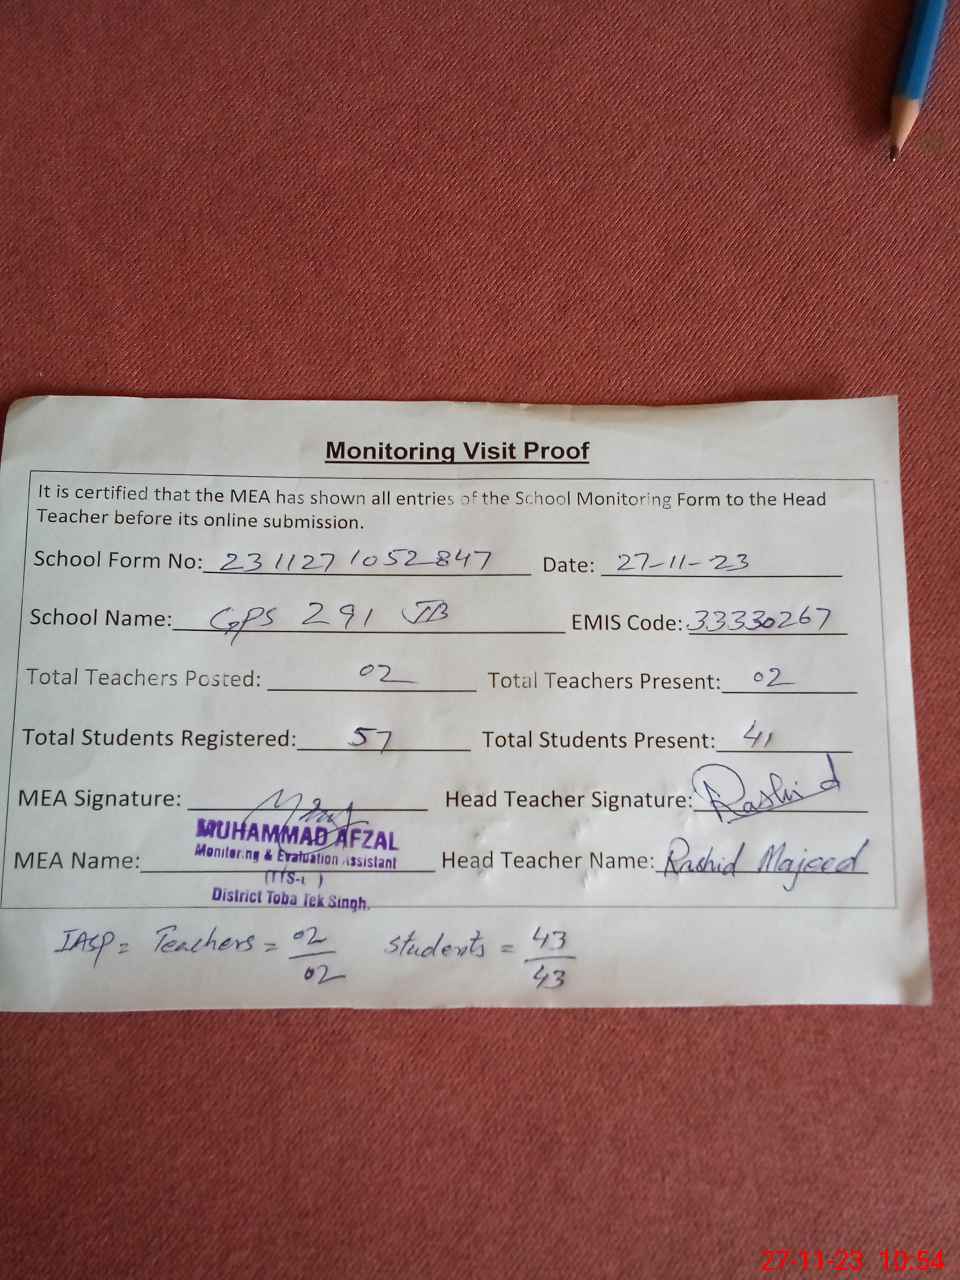 Monitoring Visit Proof
It is certified that the MEA has shown all entries of the School Monitoring Form to the Head
Teacher before its online submission.
School Form No: 2311271052847 Date: 27-11-23
School Name: GPS 291 JB EMIS Code: 33330267
Total Teachers Posted: 02 Total Teachers Present: 02
Total Students Registered: 57 Total Students Present: 41
MEA Signature: Head Teacher Signature: Rashid
MUHAMMAD AFZAL
MEA Name: Monitoring & Evaluation Assistant Head Teacher Name: Rashid Majeed
District Toba Tek Singh.
IASP = Teachers = 02/02 Students = 43/43
27-11-23 10:54